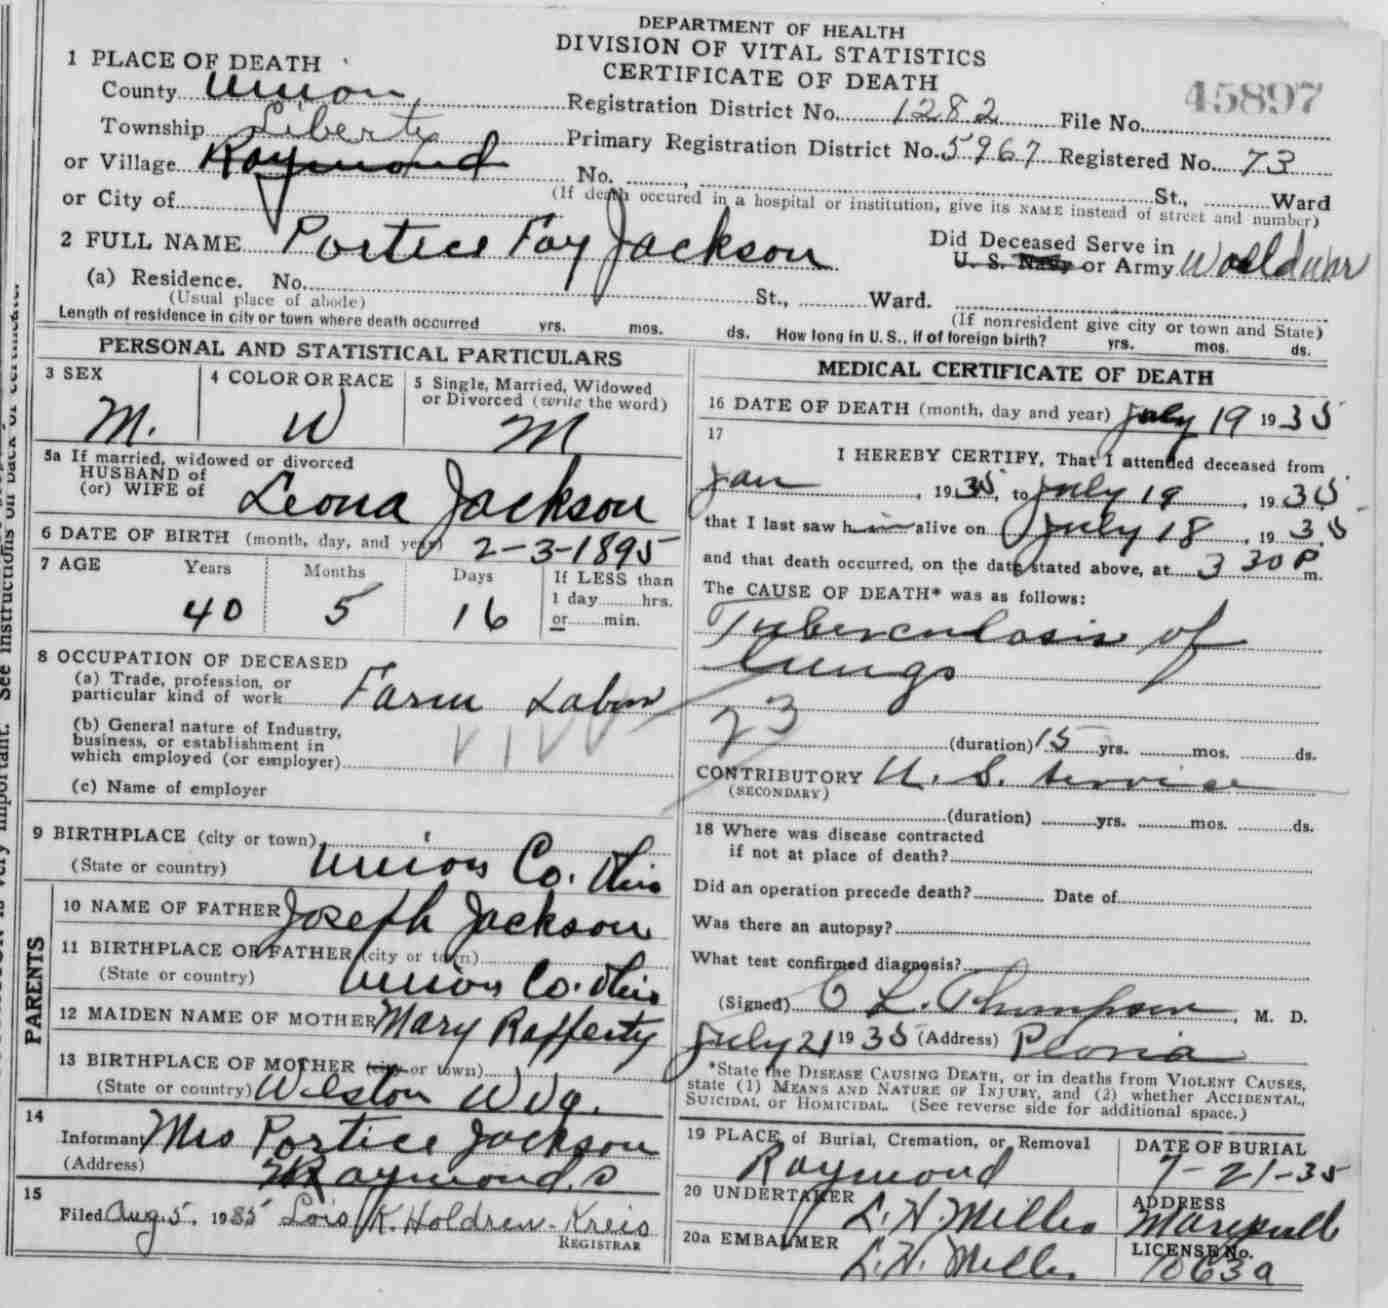 DEPARTMENT OF HEALTH
DIVISION OF VITAL STATISTICS
CERTIFICATE OF DEATH
45897
1 PLACE OF DEATH
County Union
Registration District No. 1282 File No.
Township Liberty
Primary Registration District No. 5967 Registered No. 73
or Village Raymond
No. , St., Ward
or City of
(If death occured in a hospital or institution, give its NAME instead of street and number)
2 FULL NAME Portice Foy Jackson
Did Deceased Serve in
U. S. Navy or Army World War
(a) Residence. No. St., Ward.
(Usual place of abode)
(If nonresident give city or town and State)
Length of residence in city or town where death occurred yrs. mos. ds. How long in U. S., if of foreign birth? yrs. mos. ds.
PERSONAL AND STATISTICAL PARTICULARS
3 SEX
M.
4 COLOR OR RACE
W
5 Single, Married, Widowed
or Divorced (write the word)
M
5a If married, widowed or divorced
HUSBAND of
(or) WIFE of Leona Jackson
6 DATE OF BIRTH (month, day, and year) 2-3-1895
7 AGE Years Months Days If LESS than
1 day hrs.
or min.
40 5 16
8 OCCUPATION OF DECEASED
(a) Trade, profession, or
particular kind of work Farm Labor
(b) General nature of Industry,
business, or establishment in
which employed (or employer)
(c) Name of employer
9 BIRTHPLACE (city or town)
(State or country) Union Co. Ohio
PARENTS
10 NAME OF FATHER Joseph Jackson
11 BIRTHPLACE OF FATHER (city or town)
(State or country) Union Co. Ohio
12 MAIDEN NAME OF MOTHER Mary Rafferty
13 BIRTHPLACE OF MOTHER (city or town)
(State or country) Weston W Va.
14
Informant Mrs Portice Jackson
(Address) Raymond. O
15
Filed Aug. 5, 1935 Lois K. Holdren-Kreis
REGISTRAR
MEDICAL CERTIFICATE OF DEATH
16 DATE OF DEATH (month, day and year) July 19 1935
17
I HEREBY CERTIFY, That I attended deceased from
Jan , 1935, to July 19 , 1935
that I last saw h im alive on July 18 , 1935,
and that death occurred, on the date stated above, at 3 30 P m.
The CAUSE OF DEATH* was as follows:
Tuberculosis of
Lungs
23
(duration) 15 yrs. mos. ds.
CONTRIBUTORY U. S. Service
(SECONDARY)
(duration) yrs. mos. ds.
18 Where was disease contracted
if not at place of death?
Did an operation precede death? Date of
Was there an autopsy?
What test confirmed diagnosis?
(Signed) C L. Thompson , M. D.
July 21 1935 (Address) Peoria
*State the DISEASE CAUSING DEATH, or in deaths from VIOLENT CAUSES,
state (1) MEANS AND NATURE OF INJURY, and (2) whether ACCIDENTAL,
SUICIDAL or HOMICIDAL. (See reverse side for additional space.)
19 PLACE of Burial, Cremation, or Removal
Raymond
DATE OF BURIAL
7-21-35
20 UNDERTAKER
L. H. Miller
ADDRESS
20a EMBALMER
L. H. Miller
LICENSE No.
1063a